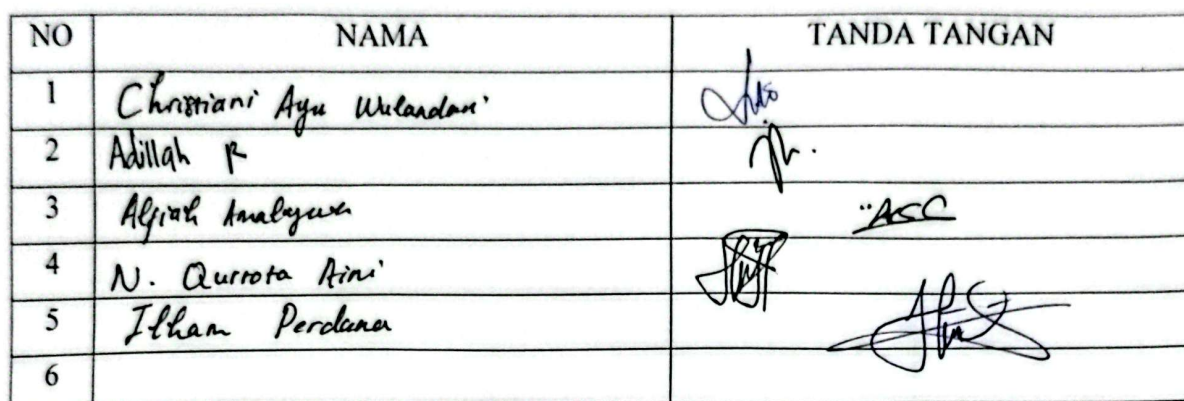 NO NAMA TANDA TANGAN
1 Christiani Ayu Wulandari
2 Adillah R
3 Alfiah
4 N. Qurrota Aini
5 Ilham Perdana
6